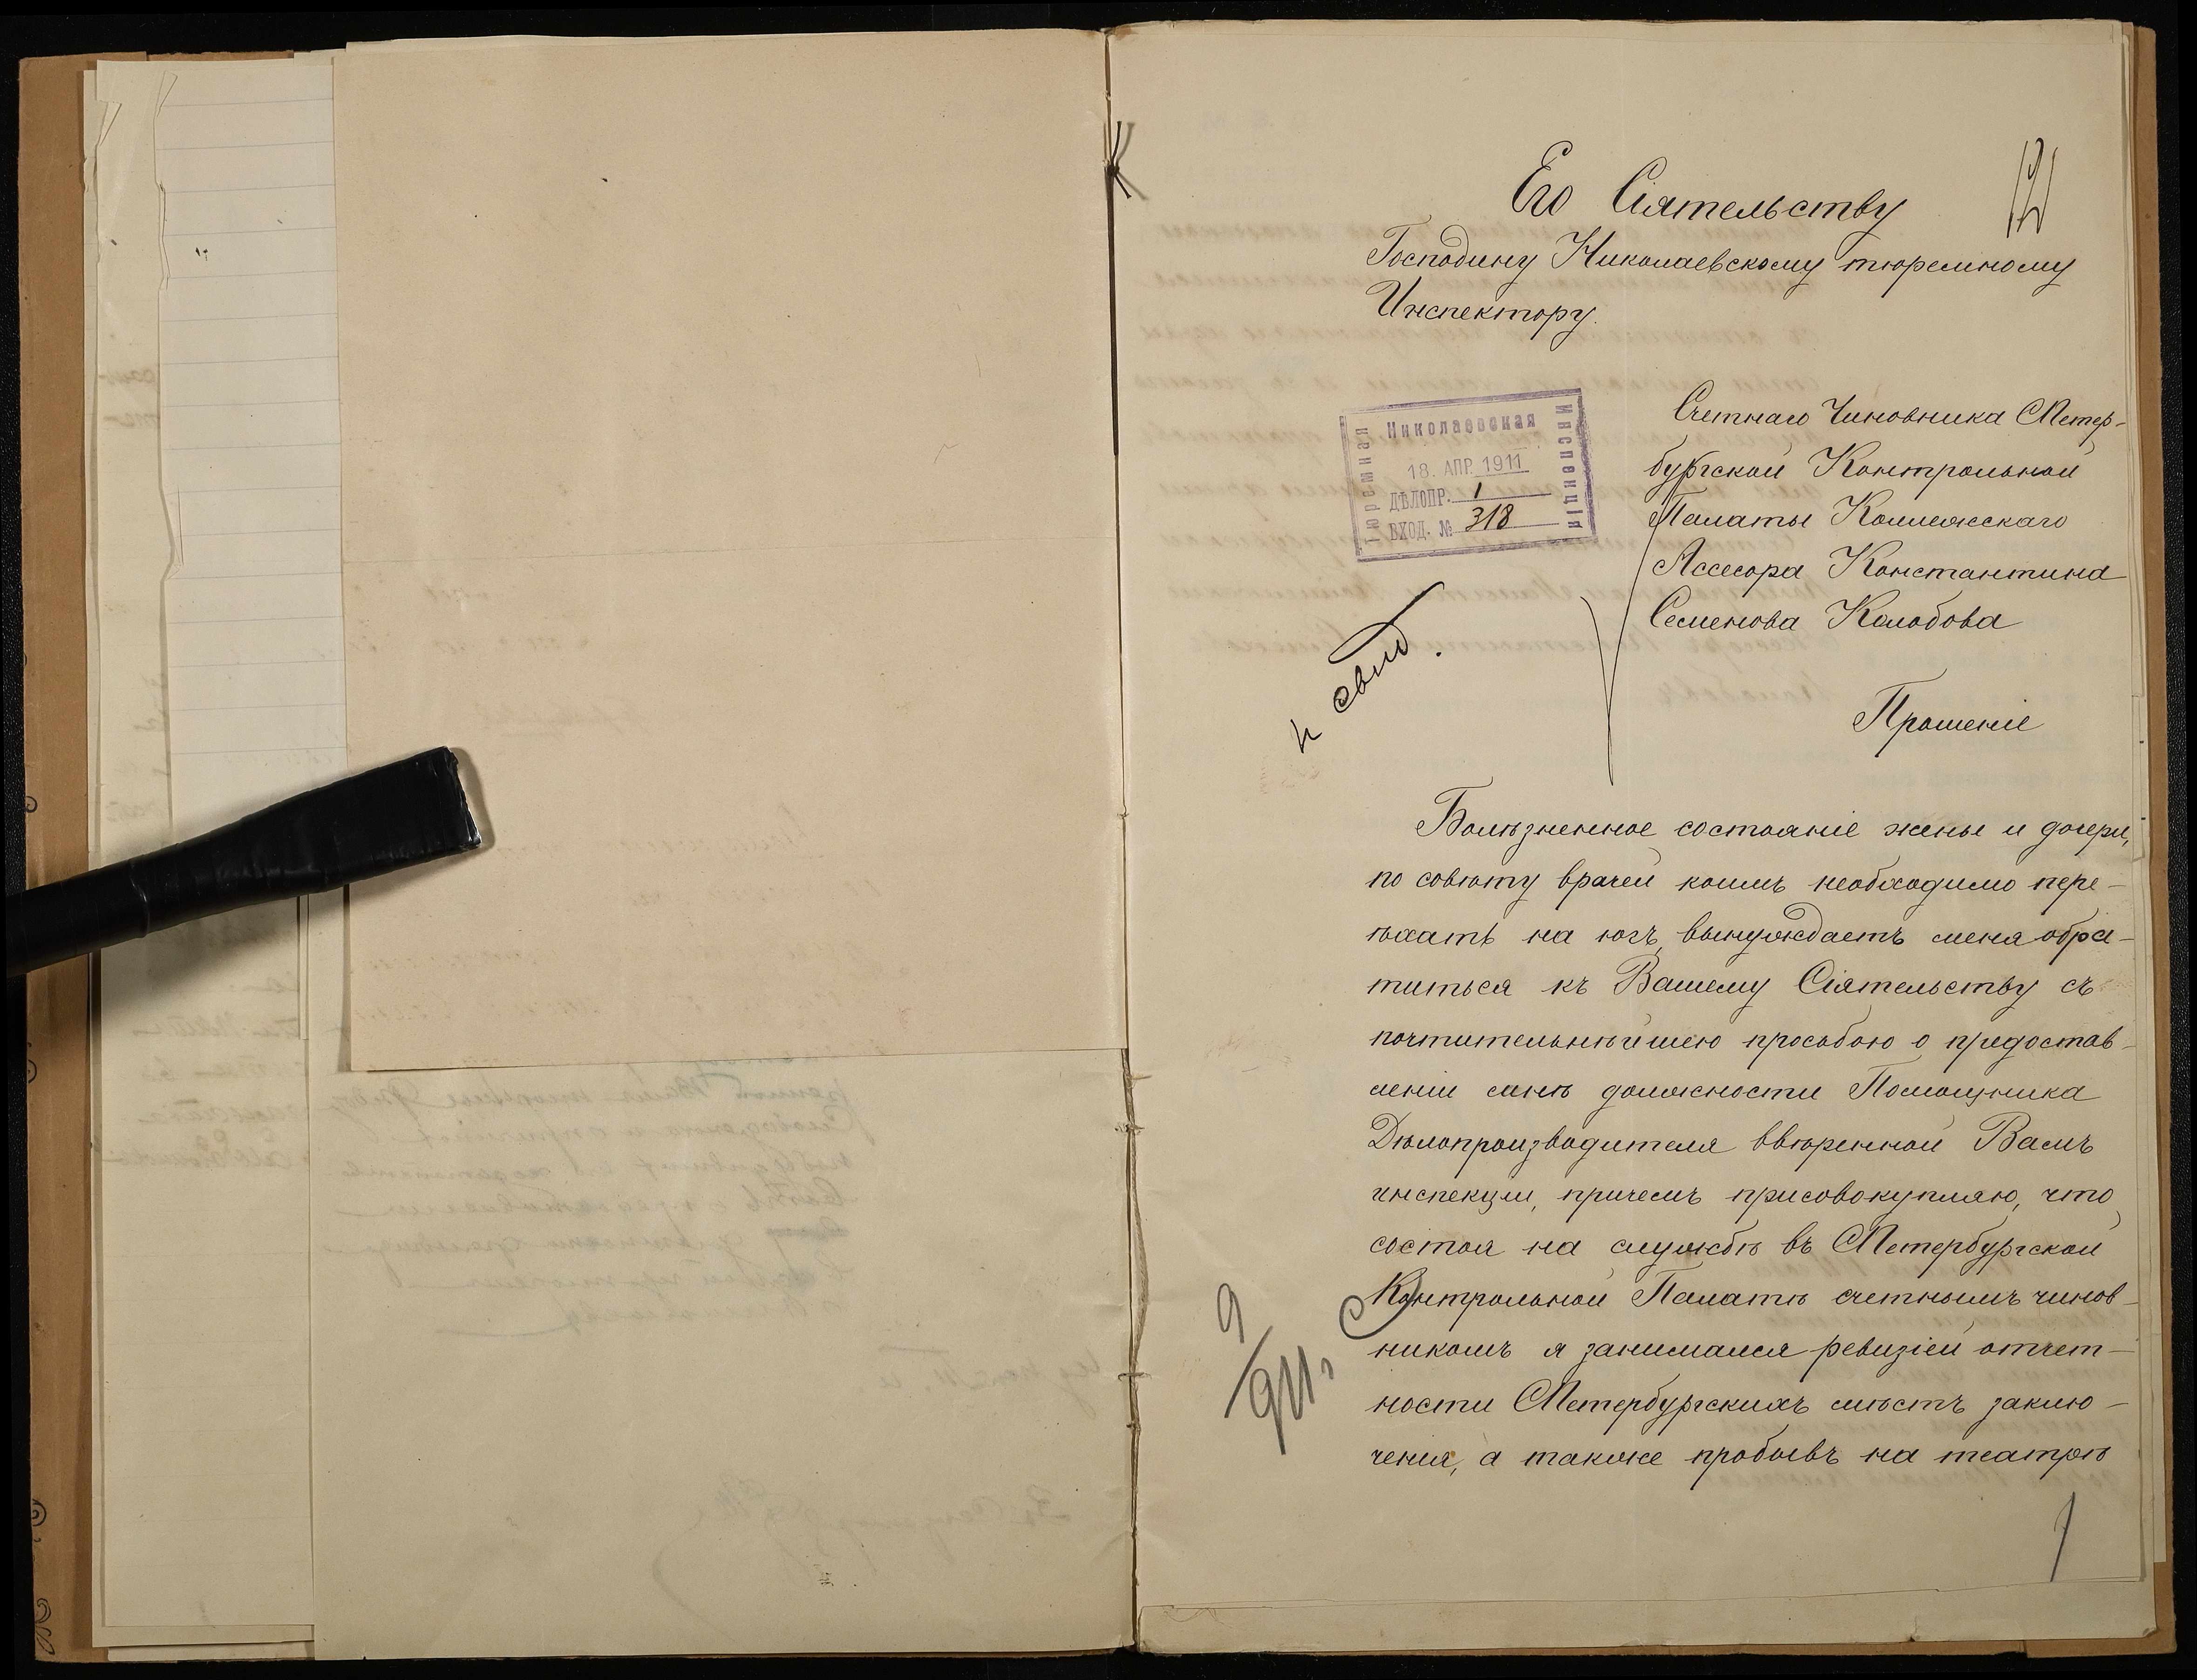 Его Сіятельству
Господину Николаевскому тюремному
Инспектору.
Николаевская
Тюремная
Инспекція
18. АПР. 1911
ДѢЛОПР. 1
ВХОД. № 318
Счетнаго Чиновника СПетер-
бургской Контрольной
Палаты Коллежскаго
Ассесора Константина
Семенова Колобова
Прошеніе
Болѣзненное состояніе жены и дочери,
по совѣту врачей коимъ необходимо пере-
ѣхать на югъ, вынуждаетъ меня обра-
титься къ Вашему Сіятельству съ
почтительнѣйшею просьбою о предостав-
леніи мнѣ должности Помощника
Дѣлопроизводителя ввѣренной Вамъ
инспекции, причемъ присовокупляю, что
состоя на службѣ въ СПетербургской
Контрольной Палатѣ счетнымъ чинов-
никомъ я занимался ревизіей отчет-
ности СПетербургскихъ мѣстъ заклю-
ченія, а также пробывъ на театрѣ